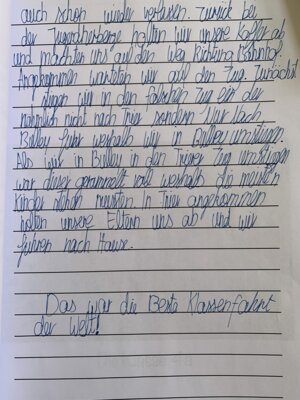 auch schon wieder verlassen. Zurück bei
der Jugendherberge holten wir unsere Koffer ab
und machten uns auf den Weg Richtung Bahnhof.
Angekommen warteten wir auf den Zug. Zunächst
stiegen wir in den falschen Zug ein der
nämlich nicht nach Trier sondern nur nach
Bulley fuhr weshalb wir in Bulley umstiegen.
Als wir in Bulley in den Trierer Zug umstiegen
war dieser gerammelt voll weshalb die meisten
Kinder stehen mussten. In Trier angekommen
holten unsere Eltern uns ab und wir
fuhren nach Hause.
Das war die Beste Klassenfahrt
der Welt!